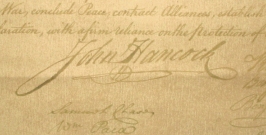 War, conclude Peace, contract Alliances, establish
laration, with a firm reliance on the protection of
John Hancock
Samuel Chase
Wm Paca